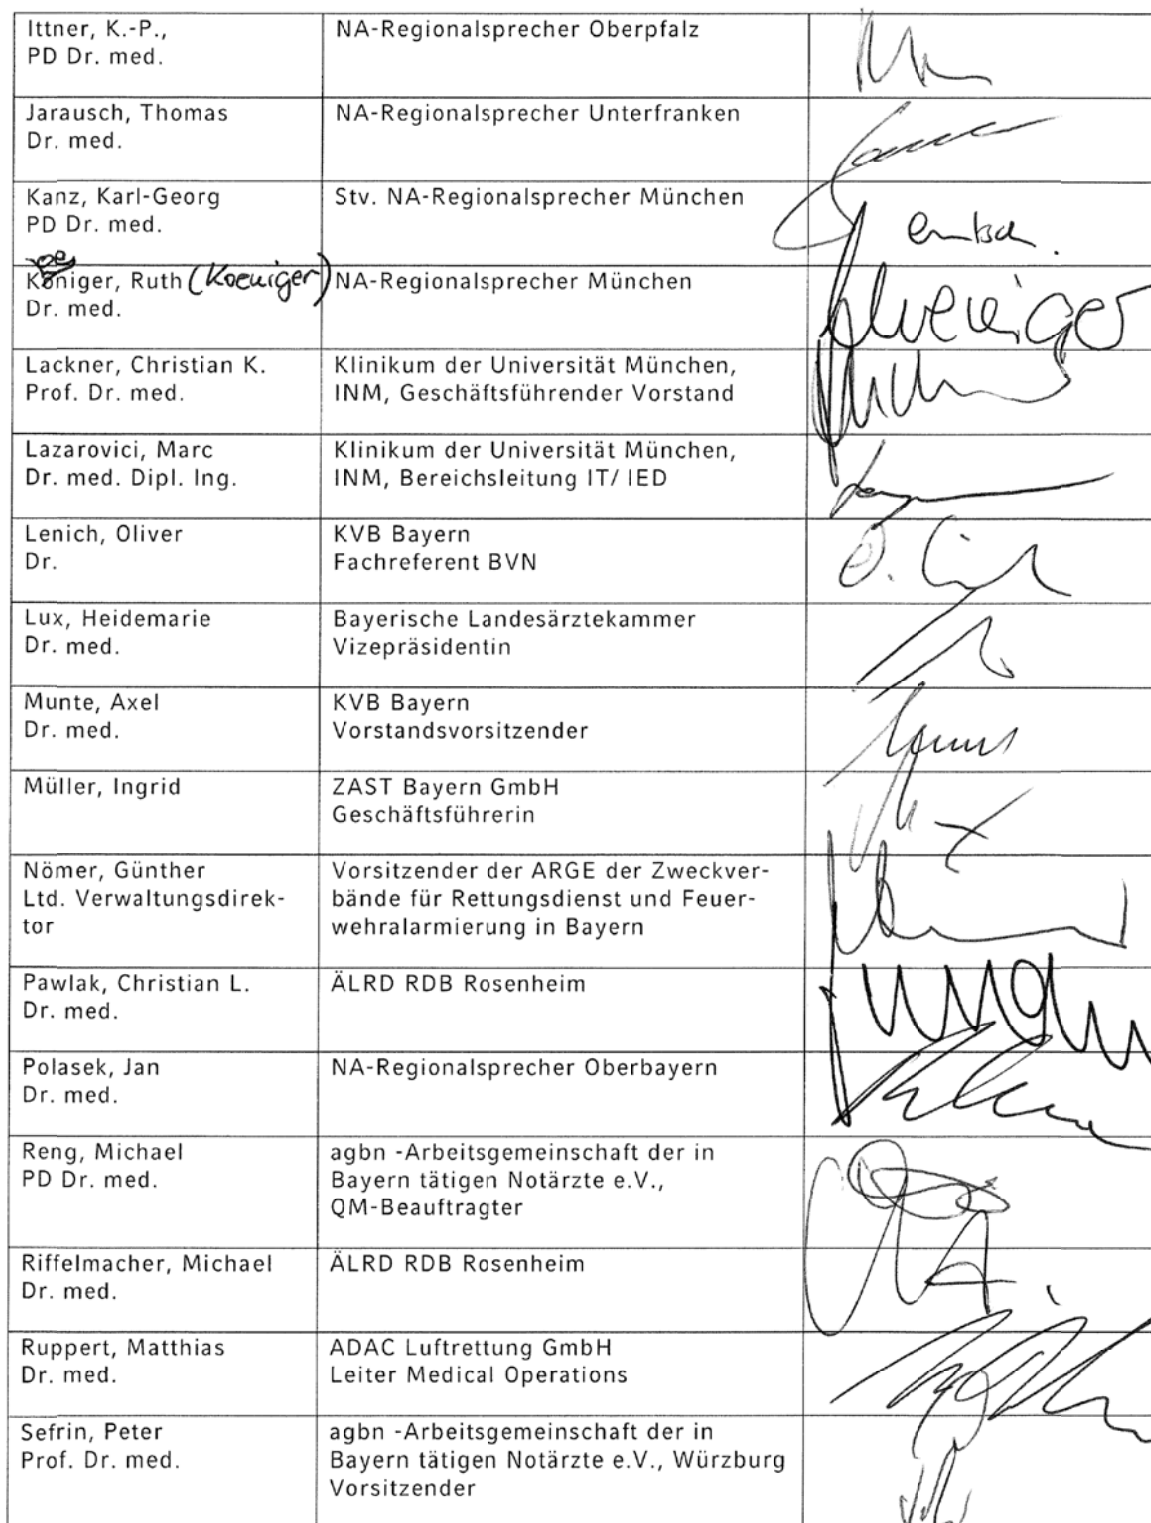 Ittner, K.-P.,
PD Dr. med.
NA-Regionalsprecher Oberpfalz
Jarausch, Thomas
Dr. med.
NA-Regionalsprecher Unterfranken
Kanz, Karl-Georg
PD Dr. med.
Stv. NA-Regionalsprecher München
entsch.
oe
Königer, Ruth (Koeniger)
Dr. med.
NA-Regionalsprecher München
Lackner, Christian K.
Prof. Dr. med.
Klinikum der Universität München,
INM, Geschäftsführender Vorstand
Lazarovici, Marc
Dr. med. Dipl. Ing.
Klinikum der Universität München,
INM, Bereichsleitung IT/ IED
Lenich, Oliver
Dr.
KVB Bayern
Fachreferent BVN
Lux, Heidemarie
Dr. med.
Bayerische Landesärztekammer
Vizepräsidentin
Munte, Axel
Dr. med.
KVB Bayern
Vorstandsvorsitzender
Müller, Ingrid
ZAST Bayern GmbH
Geschäftsführerin
Nömer, Günther
Ltd. Verwaltungsdirek-
tor
Vorsitzender der ARGE der Zweckver-
bände für Rettungsdienst und Feuer-
wehralarmierung in Bayern
Pawlak, Christian L.
Dr. med.
ÄLRD RDB Rosenheim
Polasek, Jan
Dr. med.
NA-Regionalsprecher Oberbayern
Reng, Michael
PD Dr. med.
agbn -Arbeitsgemeinschaft der in
Bayern tätigen Notärzte e.V.,
QM-Beauftragter
Riffelmacher, Michael
Dr. med.
ÄLRD RDB Rosenheim
Ruppert, Matthias
Dr. med.
ADAC Luftrettung GmbH
Leiter Medical Operations
Sefrin, Peter
Prof. Dr. med.
agbn -Arbeitsgemeinschaft der in
Bayern tätigen Notärzte e.V., Würzburg
Vorsitzender